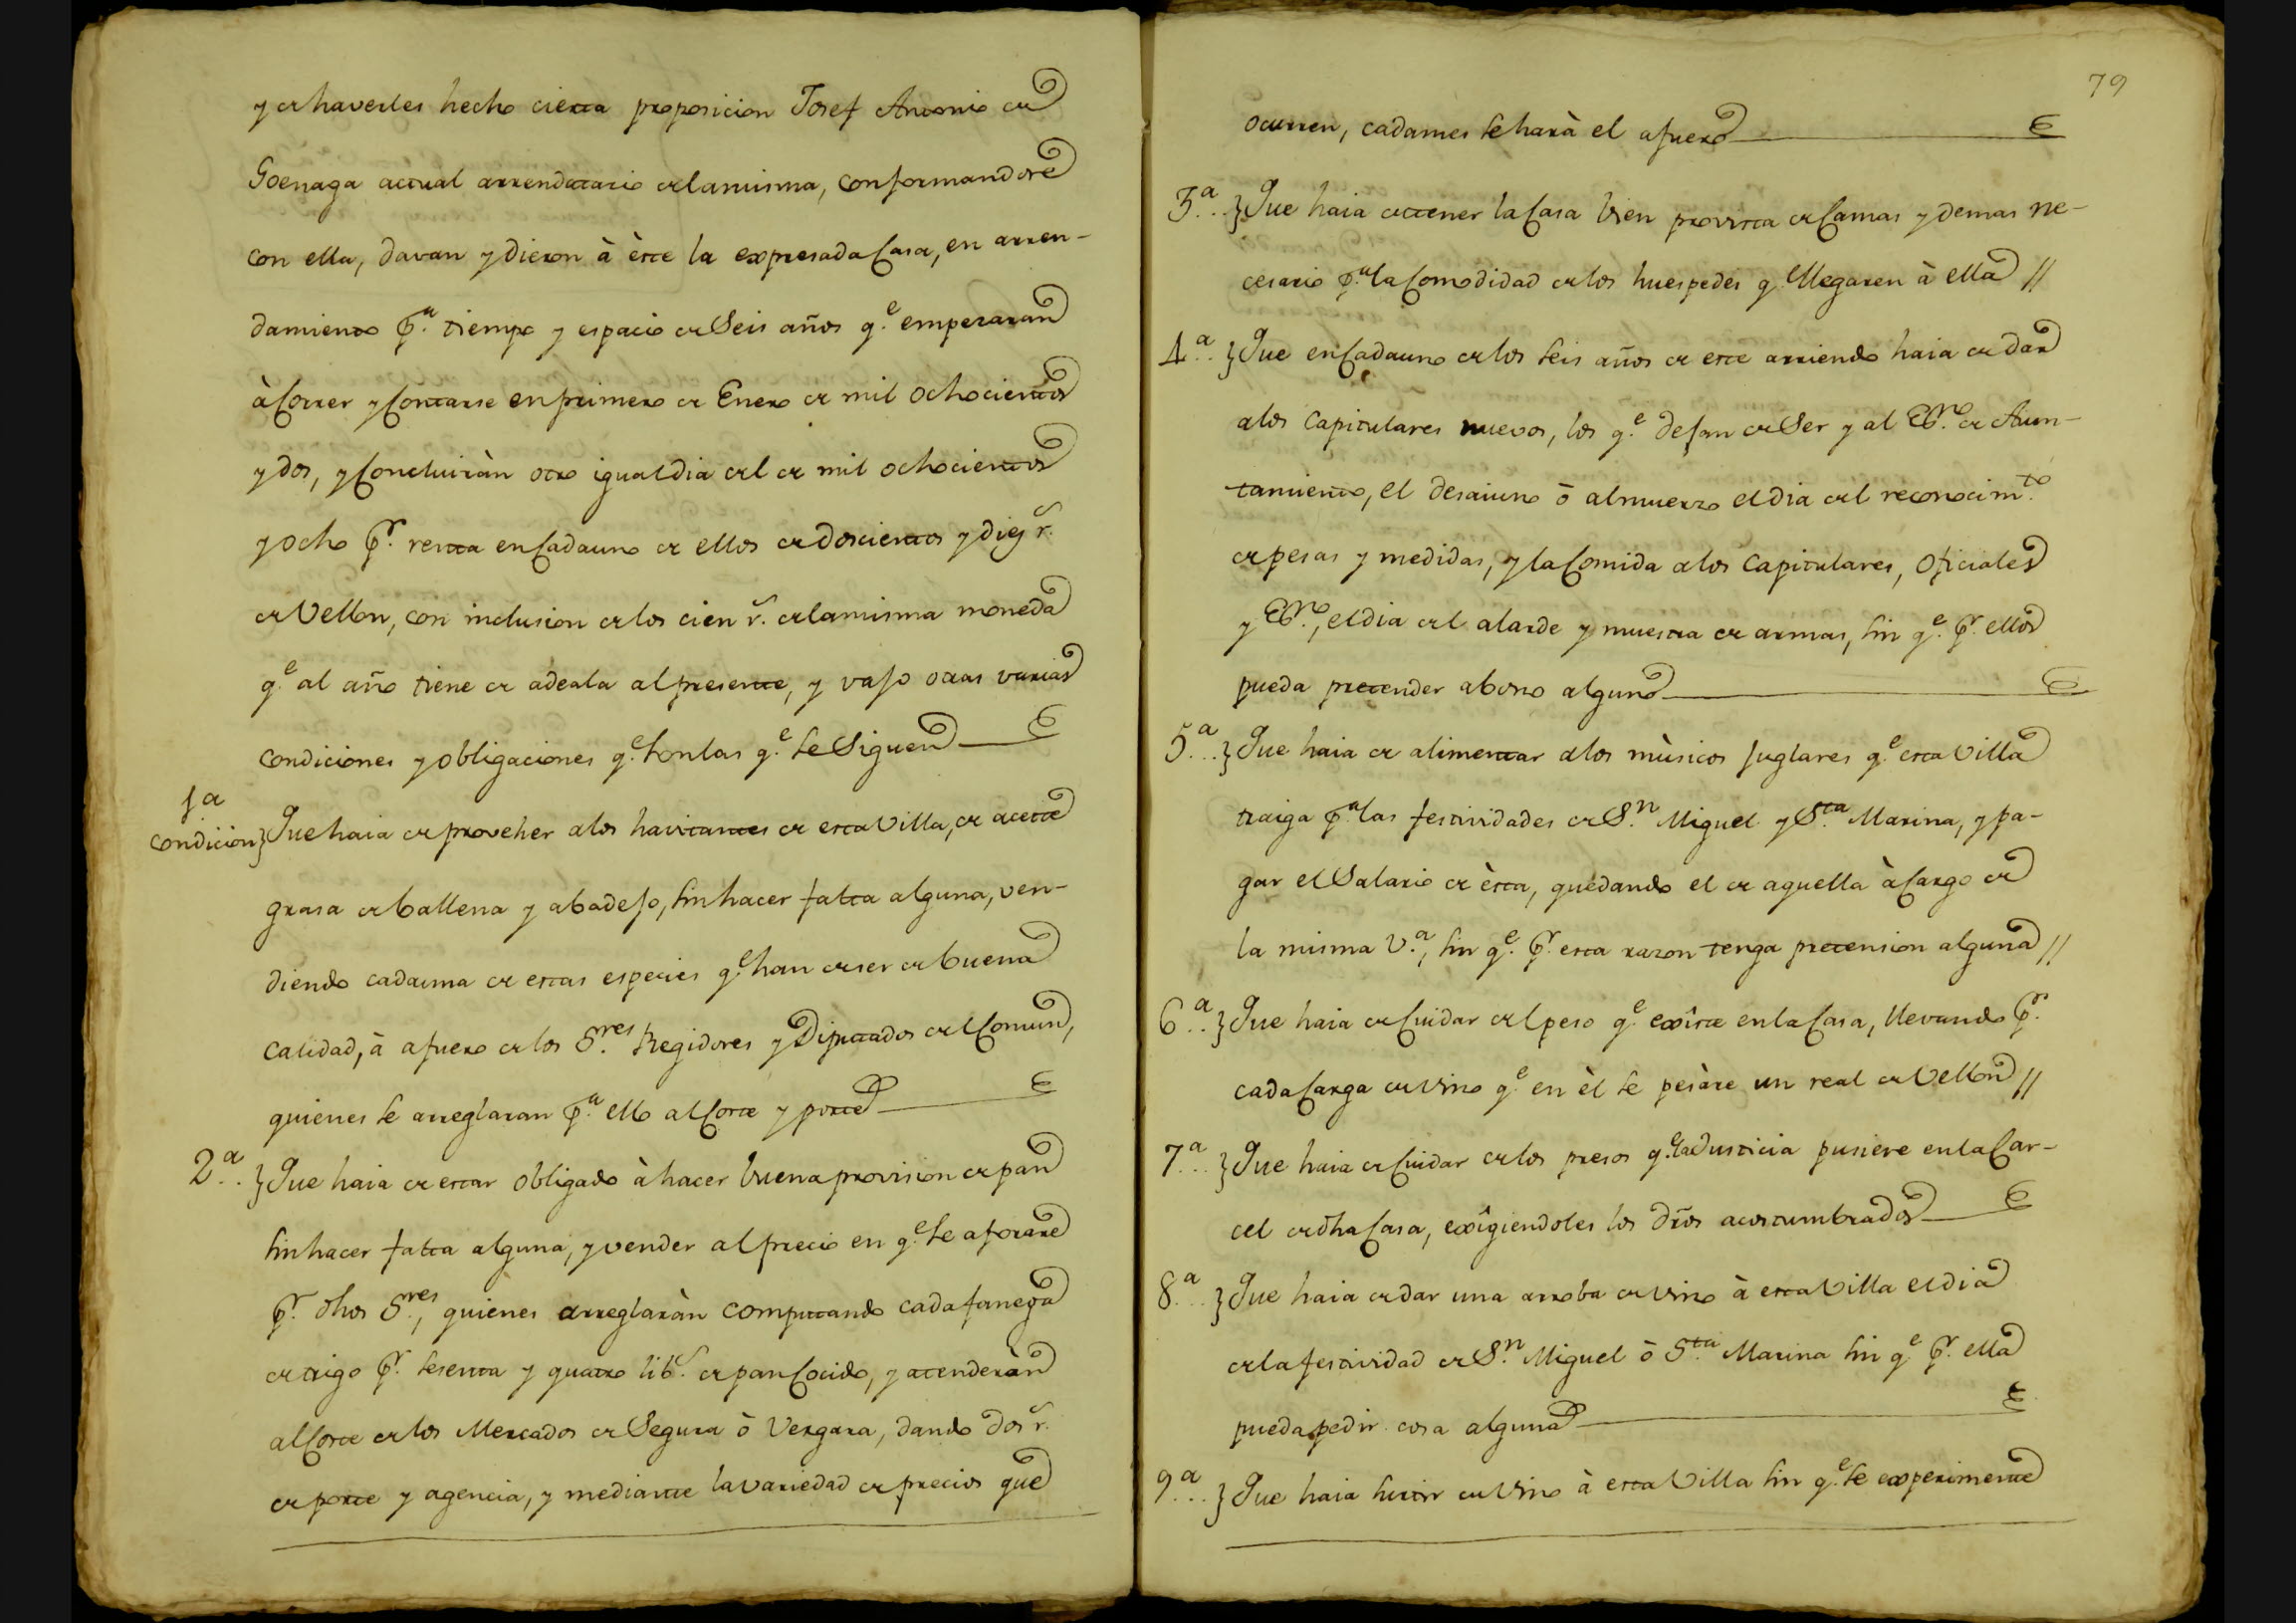 y de haverles hecho cierta proposicion Josef Antonio de
Goenaga actual arrendatario de la misma, conformandose
con ella, davan y dieron à èste la expresada Casa, en arren-
damiento p.ª tiempo y espacio de Seis años q.e empezaran
à Correr y Contarse en primero de Enero de mil ochocientos
y dos, y Concluiràn otro igual dia del de mil ochocientos
y ocho p.r renta en Cada uno de ellos de doscientos y diez r.s
de Vellon, con inclusion de los cien r.s de la misma moneda
q.e al año tiene de adeala al presente, y vajo otras varias
condiciones y obligaciones q.e Son las q.e se Siguen
1.ª
condicion} Que haia de proveher a los havitantes de esta Villa, de aceite
grasa de ballena y abadejo, sin hacer falta alguna, ven-
diendo cada una de estas especies q.e han de ser de buena
calidad, à afuero de los S.res Regidores y Diputados del Comun,
quienes se arreglaran p.ª ello al Coste y porte
2.ª..} Que haia de estar obligado à hacer buena provision de pan
sin hacer falta alguna, y vender al precio en q.e se aforare
p.r dhos S.res, quienes arreglaràn computando cada fanega
de trigo p.r sesenta y quatro lib.s de pan Cocido, y atenderàn
al Coste de los Mercados de Segura ò Vergara, dando dos r.s
de porte y agencia, y mediante la variedad de precios que
79
ocurren, cada mes se harà el afuero
3.ª..} Que haia de tener la Casa bien provista de Camas y demas ne-
cesario p.ª la Comodidad de los huespedes q.e llegaren à ella //
4.ª..} Que en Cada uno de los seis años de este arriendo haia de dar
a los Capitulares nuevos, los q.e dejan de Ser y al Ess.no de Aiun-
tamiento, el desaiuno ò almuerzo el dia del reconocim.to
de pesas y medidas, y la Comida a los Capitulares, Oficiales
y Ess.no, el dia del alarde y muestra de armas, sin q.e p.r ellos
pueda pretender abono alguno
5.ª...} Que haia de alimentar a los mùsicos Juglares q.e esta Villa
traiga p.ª las festividades de S.n Miguel y S.ta Marina, y pa-
gar el Salario de èsta, quedando el de aquella à Cargo de
la misma V.ª, sin q.e p.r esta razon tenga pretension alguna //
6.ª..} Que haia de Cuidar del peso q.e exîste en la Casa, llevando p.r
cada Carga de vino q.e en èl se pesàre un real de Vellon //
7.ª...} Que haia de Cuidar de los presos q.e la Justicia pusiere en la Car-
cel de dha Casa, exîgiendoles los dr̃os acostumbrados
8.ª...} Que haia de dar una arroba de vino à esta Villa el dia
de la festividad de S.n Miguel ò S.ta Marina sin q.e p.r ella
pueda pedir cosa alguna
9.ª...} Que haia surtir de Vino à esta Villa sin q.e se experimente